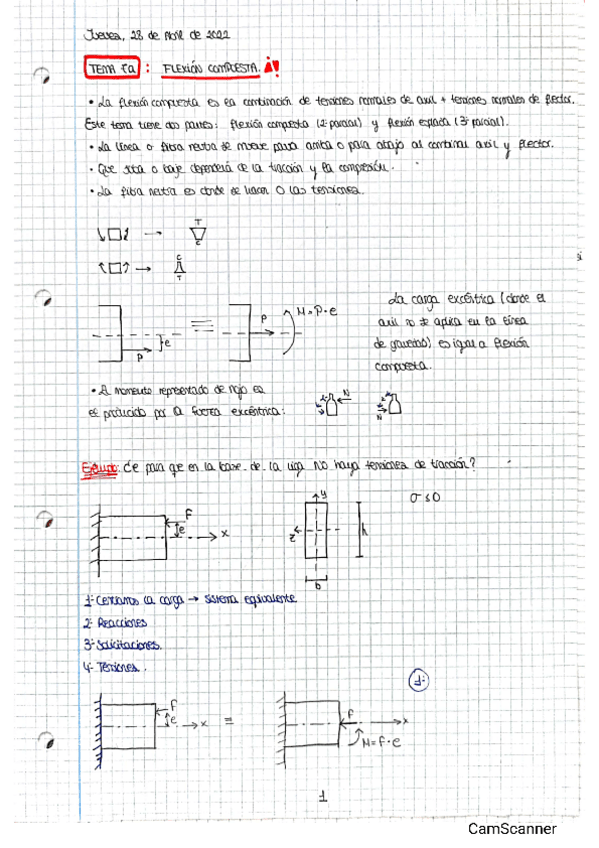 Jueves, 28 de Abril de 2022
TEMA 5a : FLEXIÓN COMPUESTA.
• La flexión compuesta es la combinación de tensiones normales de axil + tensiones normales de flector.
Este tema tiene dos partes: flexión compuesta (2º parcial) y flexión esviada (3º parcial).
• La línea o fibra neutra se mueve para arriba o para abajo al combinar axil y flector.
• Que suba o baje dependerá de la tracción y la compresión.
• La fibra neutra es donde se hacen 0 las tensiones.
T
C
C
T
P
e
P
M=P·e
La carga excéntrica (donde el
axil no se aplica en la línea
de gravedad) es igual a flexión
compuesta.
• El momento representado de rojo es
el producido por la fuerza excéntrica:
N
N
Ejemplo: ¿e para que en la base de la viga no haya tensiones de tracción?
F
e
x
y
z
h
b
σ ≤ 0
1- Centramos la carga → sistema equivalente
2- Reacciones
3- Solicitaciones.
4- Tensiones.
1-
F
e
x
=
F
x
M=F·e
1
CamScanner